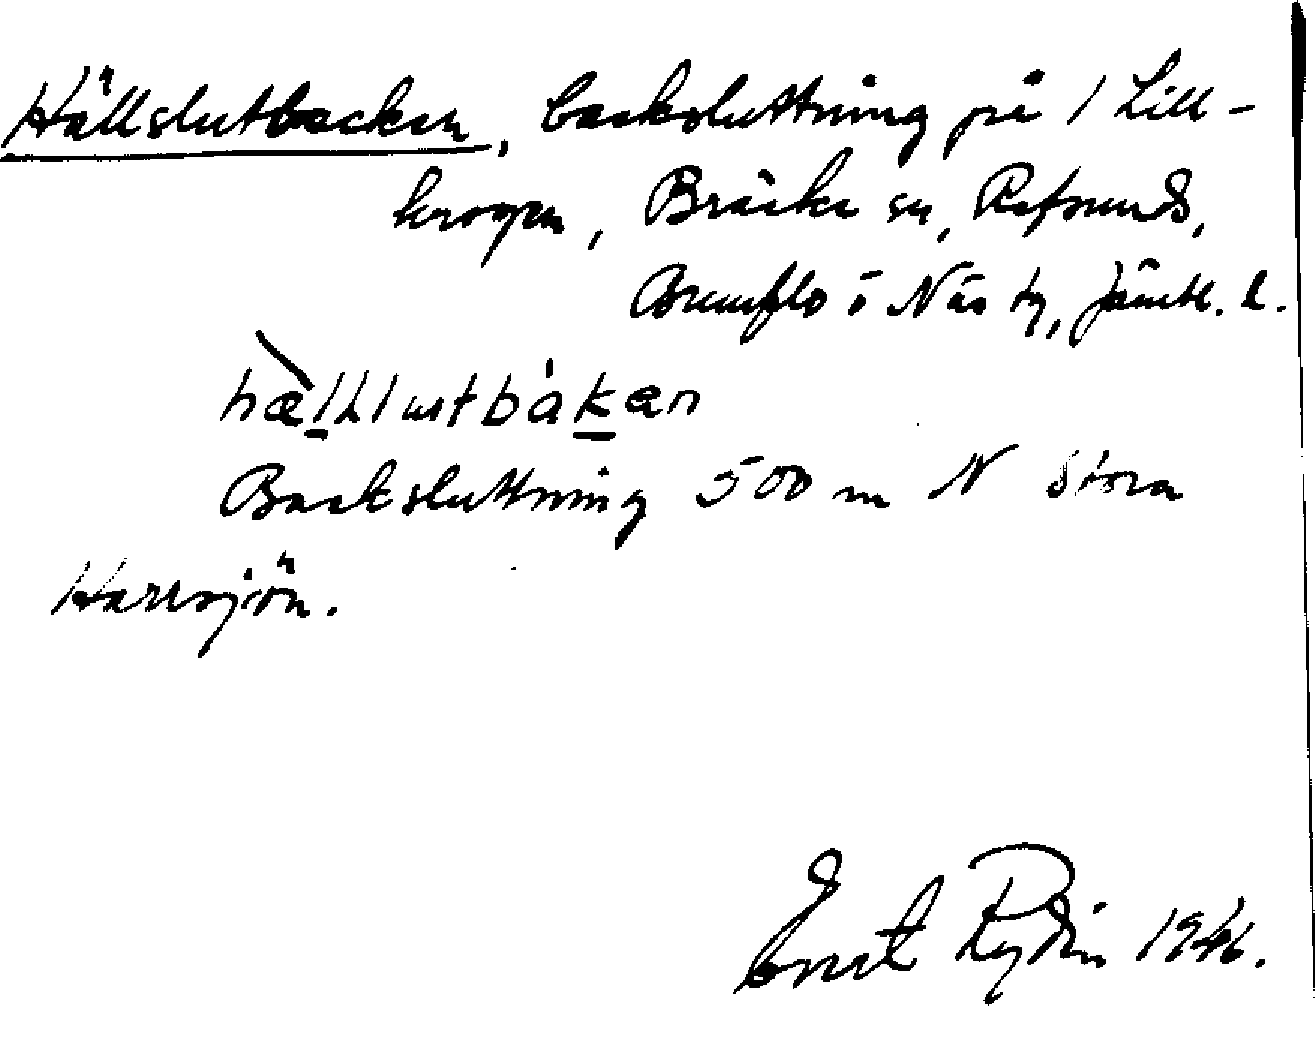 Hällslutbacken, backsluttning på 1 Lill-
krogen, Bräcke sn, Refsunds,
Brunflo o Näs tg, Jämtl. l.
Backsluttning 500 m N Stora
Harrsjön.
Ernst Rydin 1946.